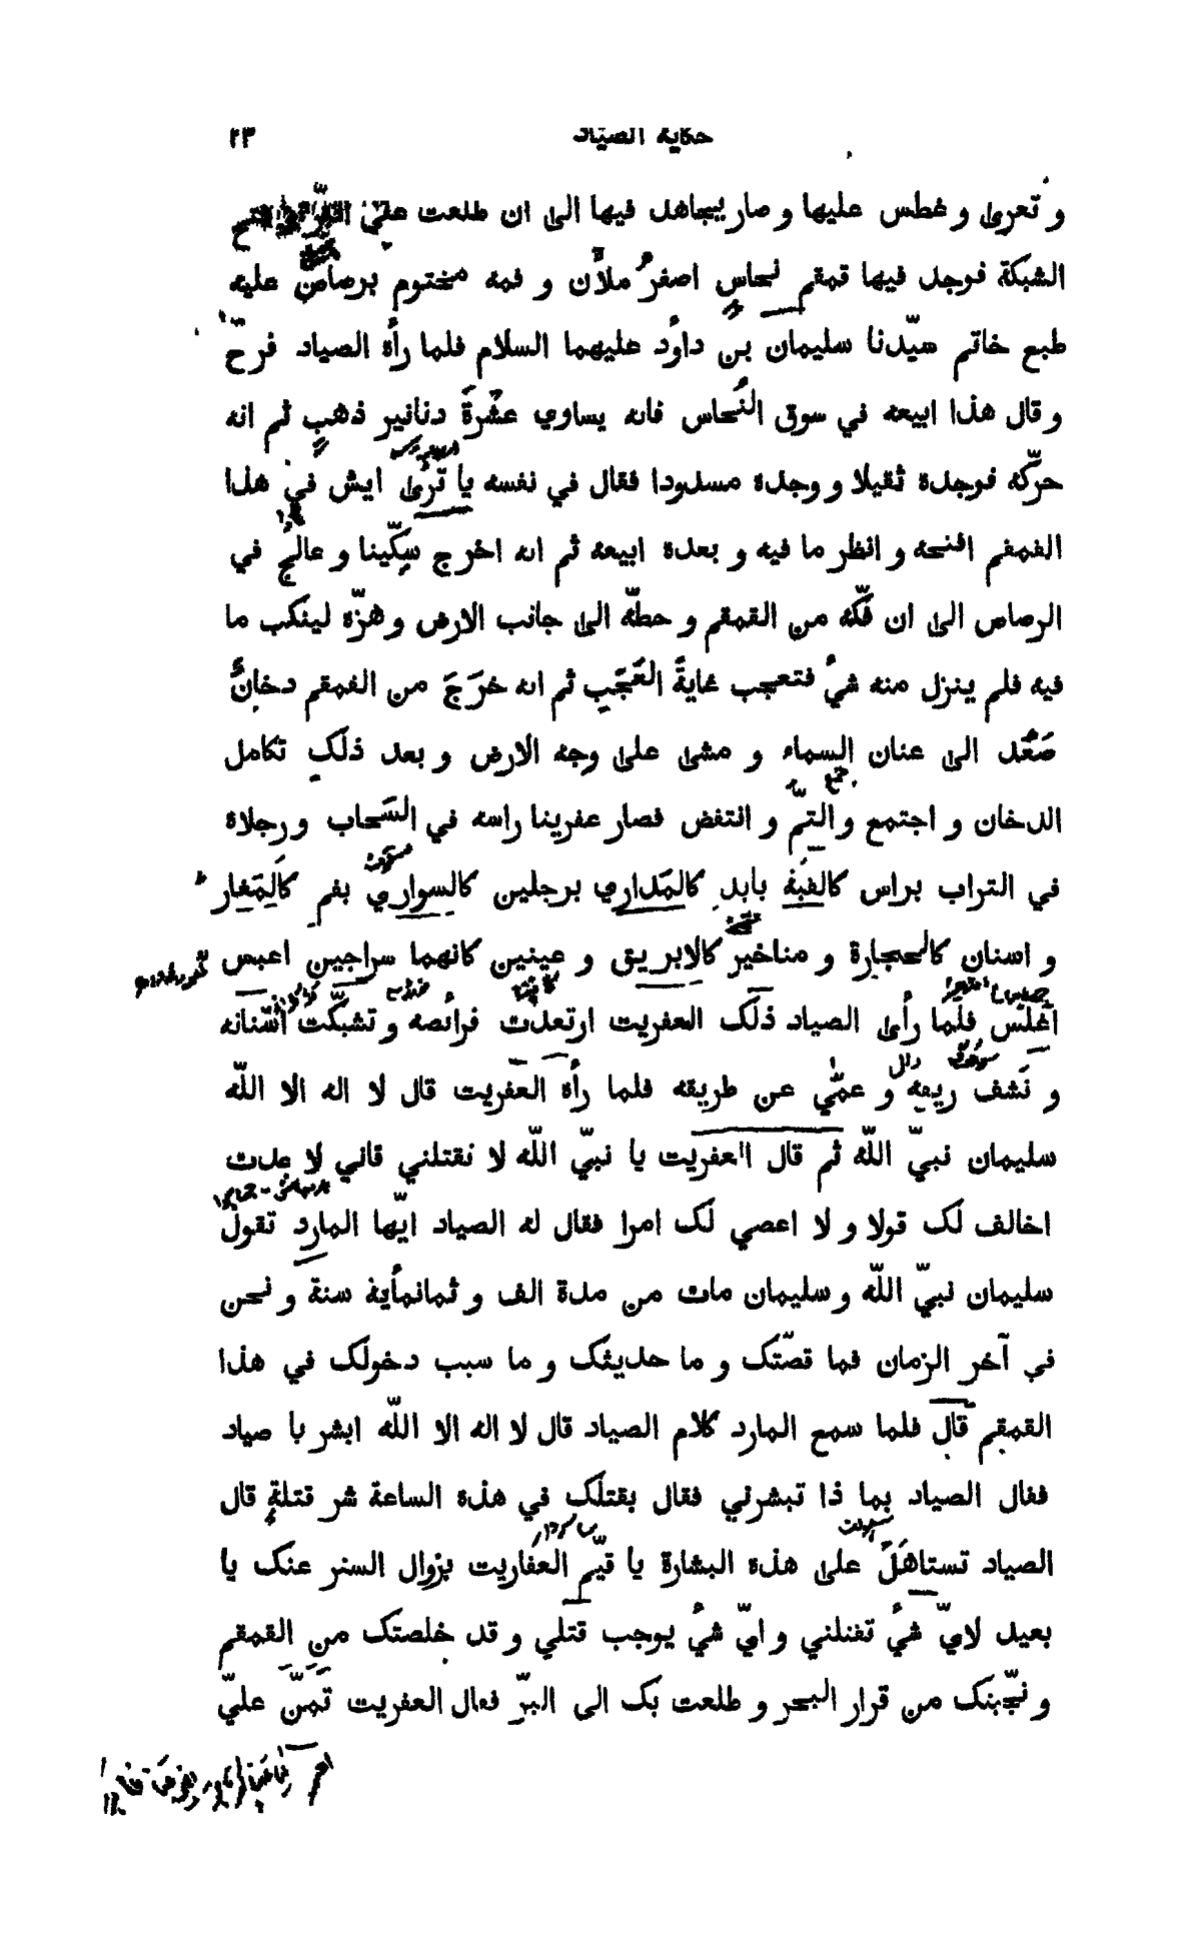 حكاية الصياد ٢٣
و تعرى و غطس عليها و صار يجاهد فيها الى ان طلعت على
الشبكة فوجد فيها قمقم نحاسٍ اصفرُ ملأن و فمه مختوم برصاص عليه
طبع خاتم سيّدنا سليمان بن داوُد عليهما السلام فلما رأه الصياد فرحّ
و قال هذا ابيعه في سوق النُحاس فانه يساوي عشرةَ دنانير ذهبٍ ثم انه
حرّكه فوجده ثقيلا و وجده مسدودا فقال في نفسه يا تُرى ايش في هذا
القمقم افتحه و انظر ما فيه و بعده ابيعه ثم انه اخرج سِكّينا و عالج في
الرصاص الى ان فّكه من القمقم و حطّه الى جانب الارض و هزّه لينكب ما
فيه فلم ينزل منه شيُ فتعجب غايةَ العَجَبِ ثم انه خرَجَ من القمقم دخانٌ
صَعُد الى عنان السماء و مشى على وجه الارض و بعد ذلك تكامل
الدخان و اجتمع و التمّ و انتفض فصار عفريتا راسه في السَحاب و رجلاه
في التراب براس كالقبة بايد كالمَداري برجلين كالسواري بفم كَالمَغار
و اسنان كالحجارة و مناخير كالابريق و عينين كانهما سراجين اعبس
اغلس فلما رأى الصياد ذلك العفريت ارتعدت فرائصه و تشبكّت اسّنانه
و نَشف ريقه و عمّي عن طريقه فلما رأه العفريت قال لا اله الا اللّه
سليمان نبيّ اللّه ثم قال العفريت يا نبيّ اللّه لا تقتلني فاني لا عدت
اخالف لك قولا و لا اعصي لك امرا فقال له الصياد ايّها المارد تقول
سليمان نبيّ اللّه و سليمان مات من مدة الف و ثمانمأية سنة و نحن
في آخر الزمان فما قصّتك و ما حديثك و ما سبب دخولك في هذا
القمقم قال فلما سمع المارد كلام الصياد قال لا اله الا اللّه ابشر يا صياد
فقال الصياد بما ذا تبشرني فقال بقتلك في هذه الساعة شر قتلةٍ قال
الصياد تستاهَلَ على هذه البشارة يا قيّم العفاريت بزوال الستر عنك يا
بعيد لايّ شيُ تقتلني و ايّ شيُ يوجب قتلي و قد خلصتك من القمقم
و نجّيتك من قرار البحر و طلعت بك الى البرّ فقال العفريت تَمَنّ عليّ